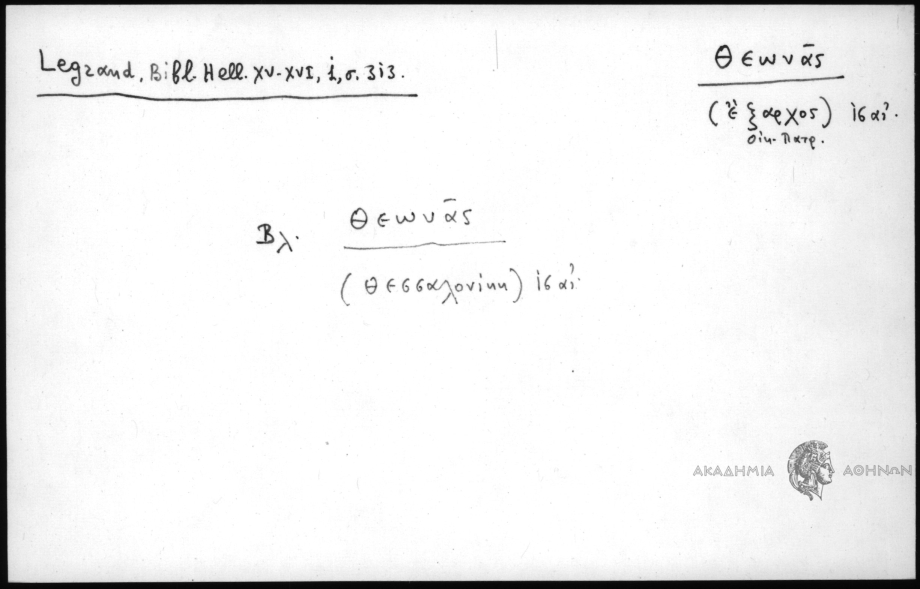 Legrand, Bibl. Hell. XV-XVI, i, σ. 313.
Θεωνᾶς
(ἔξαρχος) ις αἰ.
Οἰκ. Πατρ.
Βλ. Θεωνᾶς
(Θεσσαλονίκη) ις αἰ.
ΑΚΑΔΗΜΙΑ ΑΘΗΝΩΝ